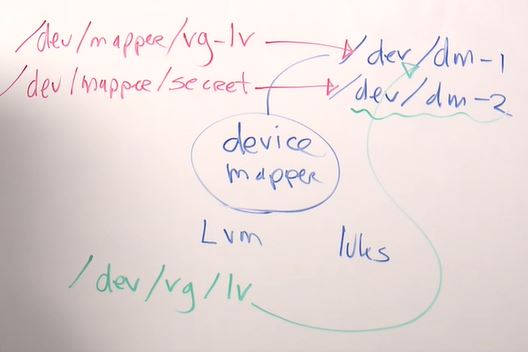 /dev/mapper/vg-lv /dev/dm-1
/dev/mapper/secret /dev/dm-2
device
mapper
Lvm luks
/dev/vg/lv